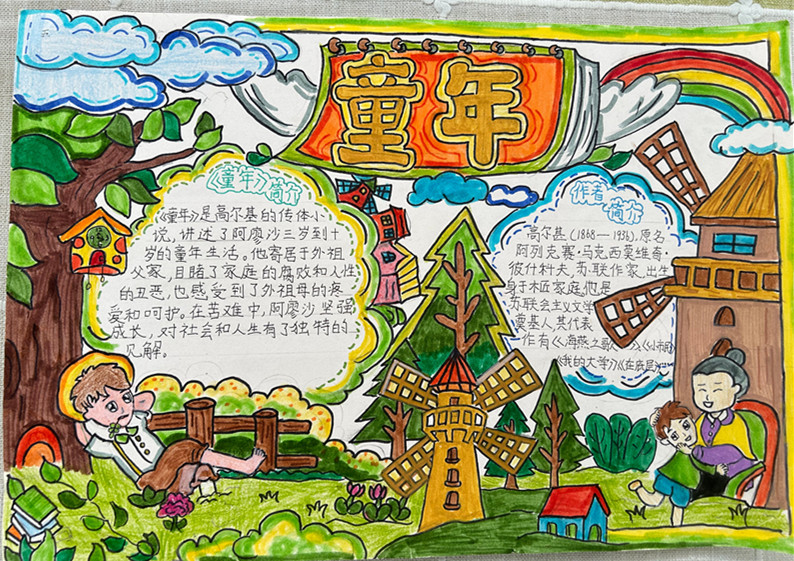 童年
《童年》简介
《童年》是高尔基的传体小
说，讲述了阿廖沙三岁到十
岁的童年生活。他寄居于外祖
父家，目睹了家庭的腐败和人性
的丑恶，也感受到了外祖母的疼
爱和呵护。在苦难中，阿廖沙坚强
成长，对社会和人生有了独特的
见解。
作者简介
高尔基（1868—1936），原名
阿列克赛·马克西莫维奇·
彼什科夫，苏联作家，出生
身于木匠家庭，他是
苏联会主义文学
奠基人，其代表
作有《海燕之歌》
《我的大学》《在底层》